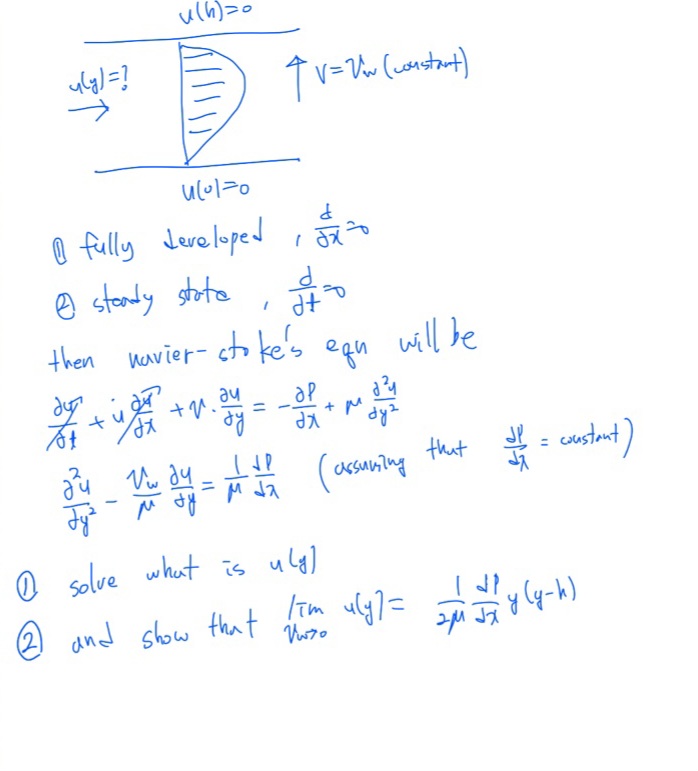 u(h)=0
u(y)=?
V=Vw (constant)
u(0)=0
① fully developed , d/dx=0
② steady state , d/dt=0
then navier-stoke's eqn will be
∂u/∂t + u ∂u/∂x + v·∂u/∂y = -∂P/∂x + μ ∂²u/∂y²
∂²u/∂y² - Vw/μ ∂u/∂y = 1/μ dP/dx (assuming that dP/dx = constant)
① solve what is u(y)
② and show that lim Vw→0 u(y) = 1/2μ dP/dx y(y-h)